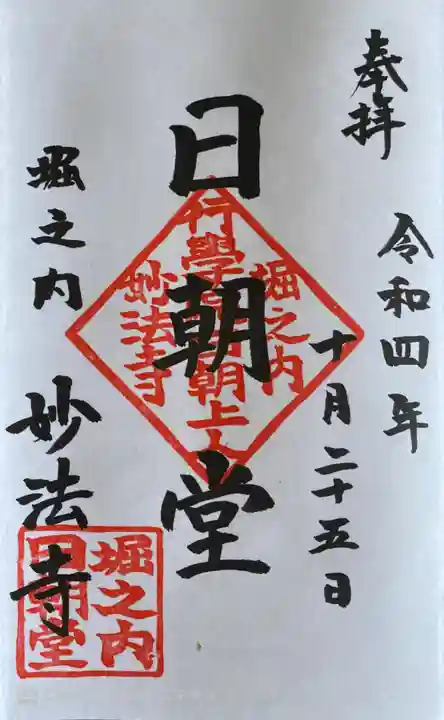 奉拝
令和四年
十月二十五日
日朝堂
堀之内
妙法寺
堀之内
妙法寺
堀之内
日朝堂